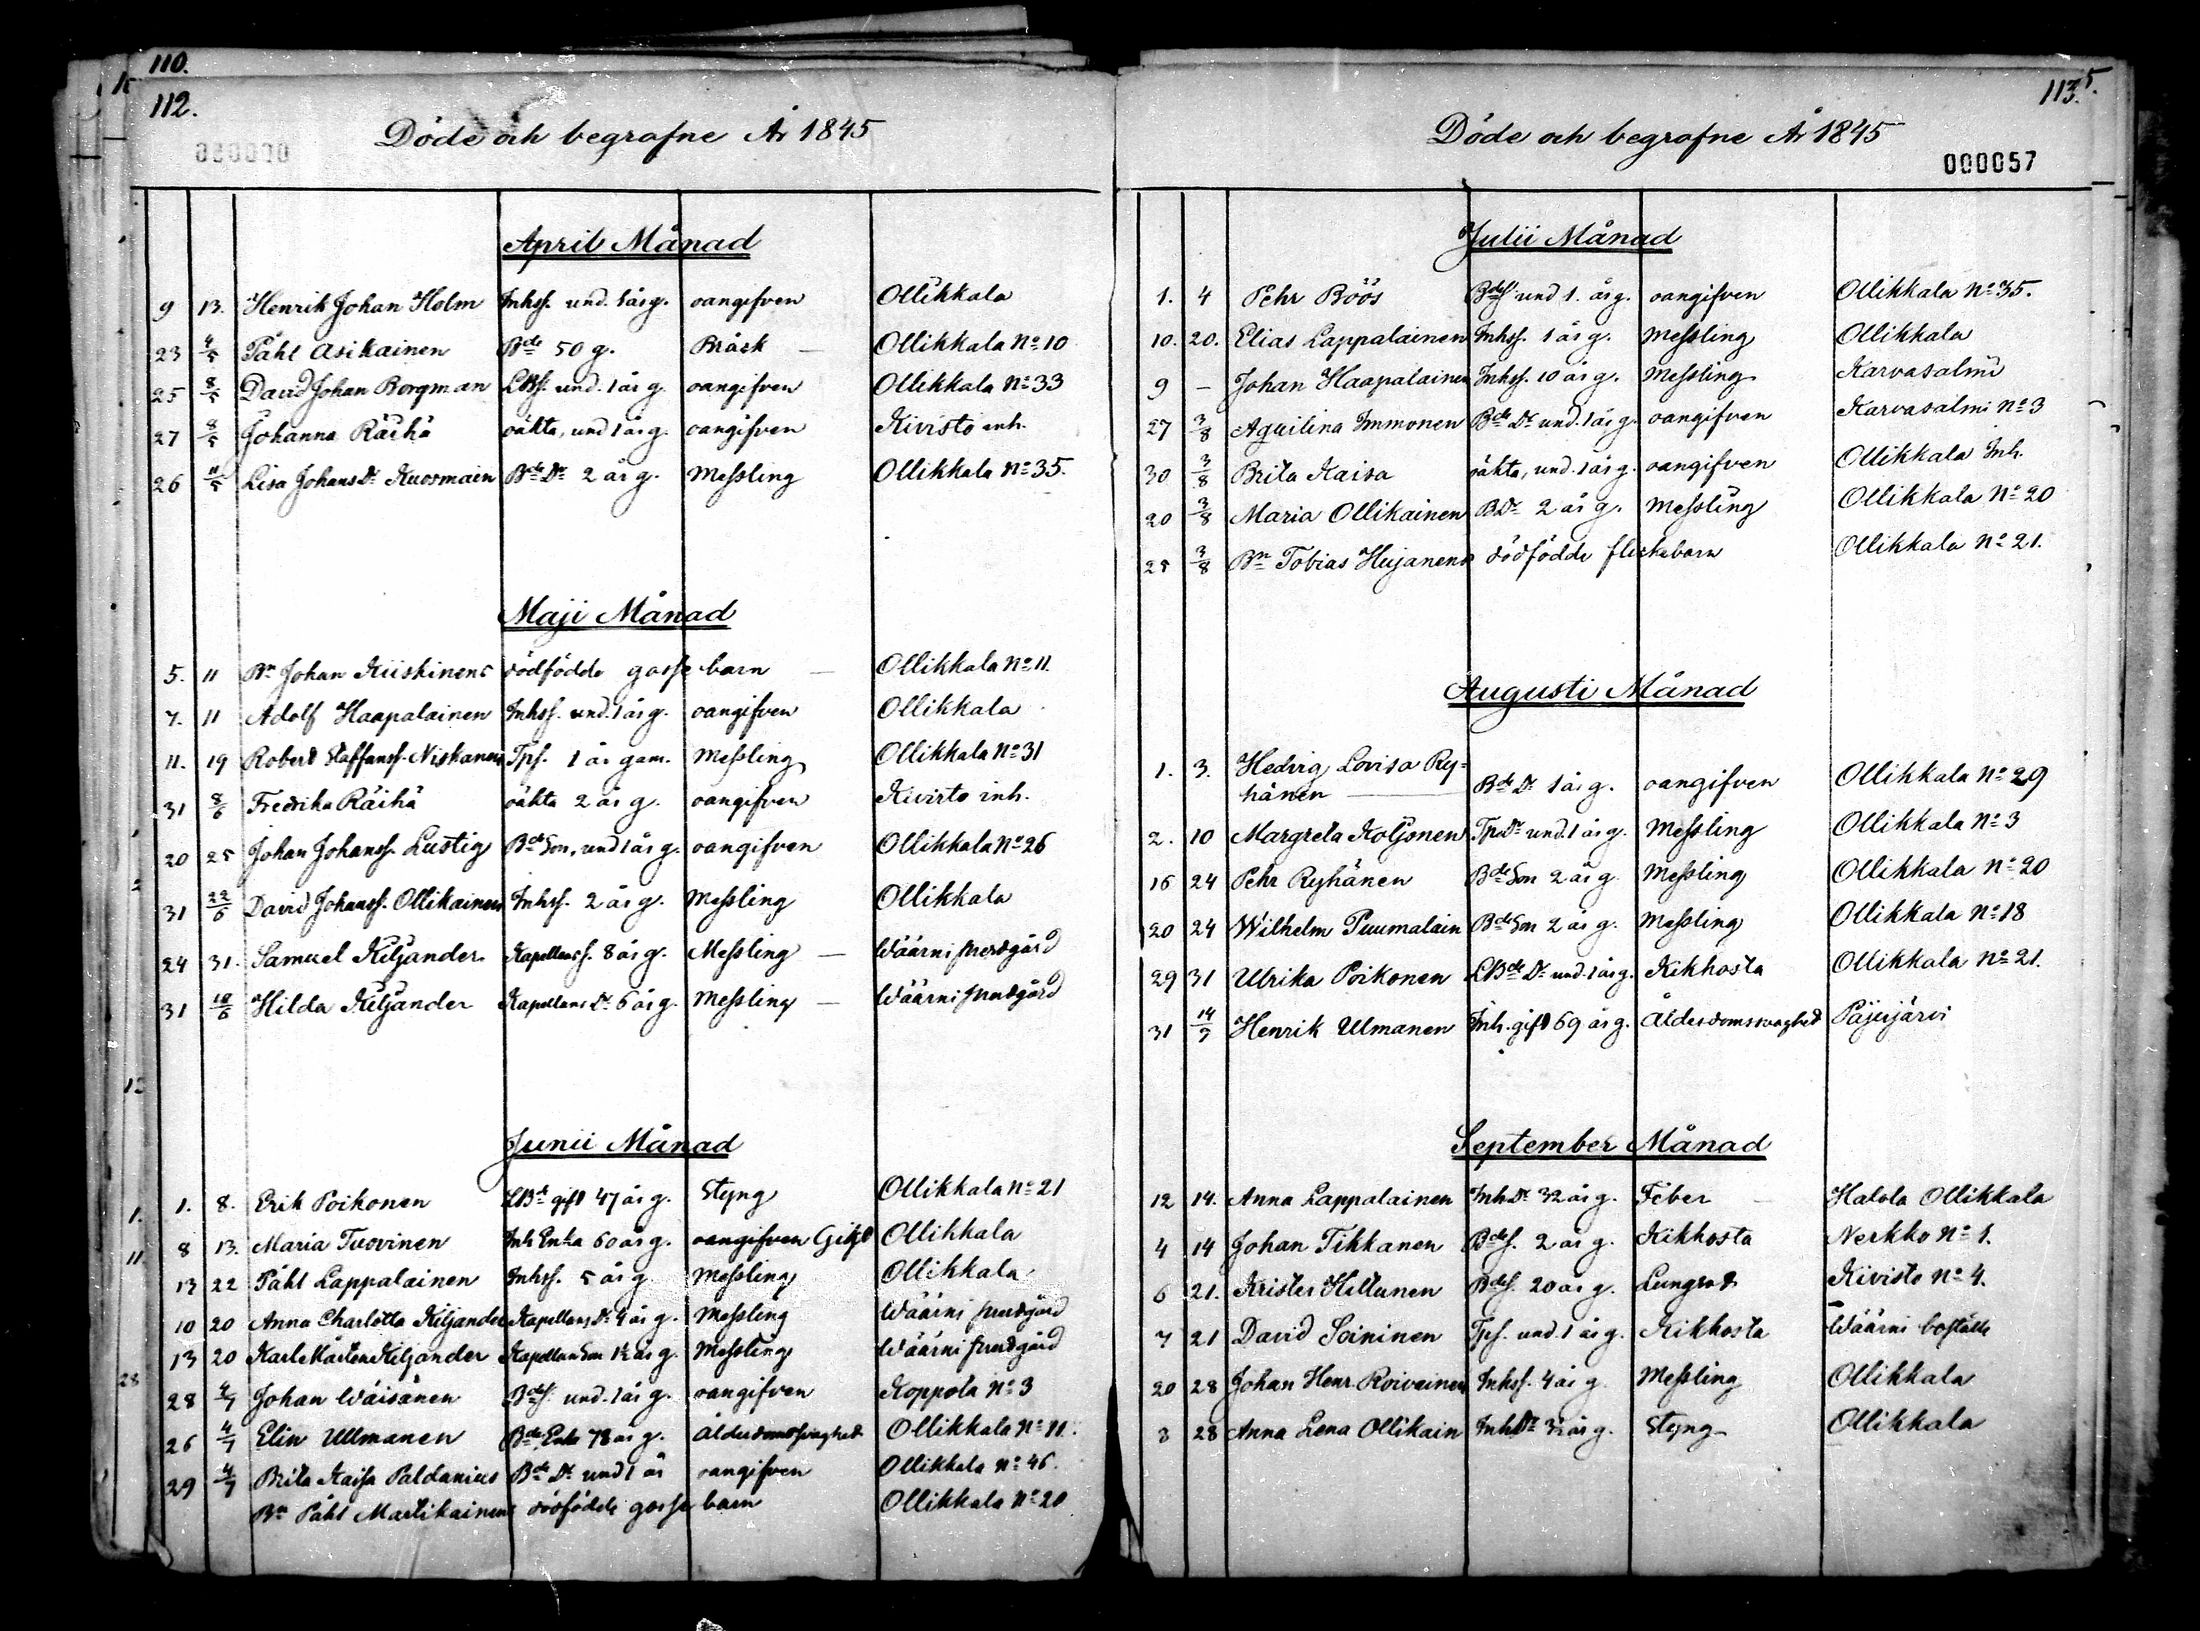 110.
112.
Döde och begrafne År 1845
April Månad
9 13. Henrik Johan Holm Inhss. und. 1 år g. oangifven Ollikkala
23 4/5 Påhl Asikainen Bde 50 g. Bråck — Ollikkala No 10
25 8/5 David Johan Borgman LBss. und. 1 år g. oangifven Ollikkala No 33
27 8/5 Johanna Räihä oäkta, und 1 år g. oangifven Kivisto inh.
26 11/5 Lisa Johans Dr Kuosmain Bde Dr 2 år g. Messling Ollikkala No 35.
Maji Månad
5. 11 Bn Johan Kiiskinens dödfödde gosse barn — Ollikkala No 11.
7. 11 Adolf Haapalainen Inhss. und. 1 år g. oangifven Ollikkala
11. 19 Robert Staffanss. Niskanen Tps. 1 år gam. Messling Ollikkala No 31
31 8/6 Fredrika Räihä oäkta 2 år g. oangifven Kivisto inh.
20 25 Johan Johanss. Lustig Bde Son, und 1 år g. oangifven Ollikkala No 26
31 22/6 David Johanss. Ollikainen Inhss. 2 år g. Messling Ollikkala
24 31. Samuel Kiljander Kapellans s. 8 år g. Messling — Wäärni prestgård
31 10/6 Hilda Kiljander Kapellans Dr 6 år g. Messling — Wäärni prestgård
Junii Månad
1. 8. Erik Poikonen LBde gift 47 år g. Styng Ollikkala No 21
8 13. Maria Tuovinen Inh Enka 60 år g. oangifven Ollikkala
13 22 Påhl Lappalainen Inhss. 5 år g Messling Ollikkala
10 20 Anna Charlotta Kiljander Kapellans Dr 4 år g. Messling Wäärni prestgård
13 20 Karl Mårten Kiljander Kapellan Son 1½ år g. Messling Wäärni prestgård
28 4/7 Johan Wäisänen Bdes. und. 1 år g. oangifven Koppola No 3
26 4/7 Elin Ullmanen Bde Enka 78 år g. Ålderdomssvaghet Ollikkala No 11.
29 4/7 Brita Kaisa Paldanius Bde Dr und 1 år oangifven Ollikkala No 46.
Bn Påhl Martikainens dödfödde gosse barn Ollikkala No 20
113.
Döde och begrafne År 1845
000057
Julii Månad
1. 4 Pehr Böös Bdes und 1. år g. oangifven Ollikkala No 35.
10. 20. Elias Lappalainen Inhss. 1 år g. Messling Ollikkala
9 — Johan Haapalainen Inhss. 10 år g. Messling Karvasalmi
27 3/8 Aquilina Immonen Bde Dr und. 1 år g. oangifven Karvasalmi No 3
30 3/8 Brita Kaisa oäkta, und. 1 år g. oangifven Ollikkala Inh.
20 3/8 Maria Ollikainen BDr 2 år g. Messling Ollikkala No 20
25 3/8 Bn Tobias Hujanens dödfödde flickebarn Ollikkala No 21.
Augusti Månad
1. 3. Hedvig Lovisa Ry=
hänen Bde Dr 1 år g. oangifven Ollikkala No 29
2. 10 Margreta Koljonen TpDr und. 1 år g. Messling Ollikkala No 3
16 24 Pehr Ryhänen Bde Son 2 år g. Messling Ollikkala No 20
20 24 Wilhelm Puumalain Bde Son 2 år g. Messling Ollikkala No 18
29 31 Ulrika Poikonen LBde Dr und. 1 år g. Kikhosta Ollikkala No 21.
31 14/9 Henrik Ulmanen Inh. gift 69 år g. Ålderdomssvaghet Päjejärvi
September Månad
12 14. Anna Lappalainen Inh Dr 32 år g. Feber Halola Ollikkala
4 14 Johan Tikkanen Bdes. 2 år g. Kikhosta Nerkko No 1.
6 21. Krister Hiltunen Bdes. 20 år g. Lungsot Kivisto No 4.
7 21 David Soininen Tps. und. 1 år g. Kikhosta Wäärni boställe
20 28 Johan Henr. Roivainen Inhss. 4 år g. Messling Ollikkala
3 28 Anna Lena Ollikain Inh Dr 3½ år g. Styng Ollikkala